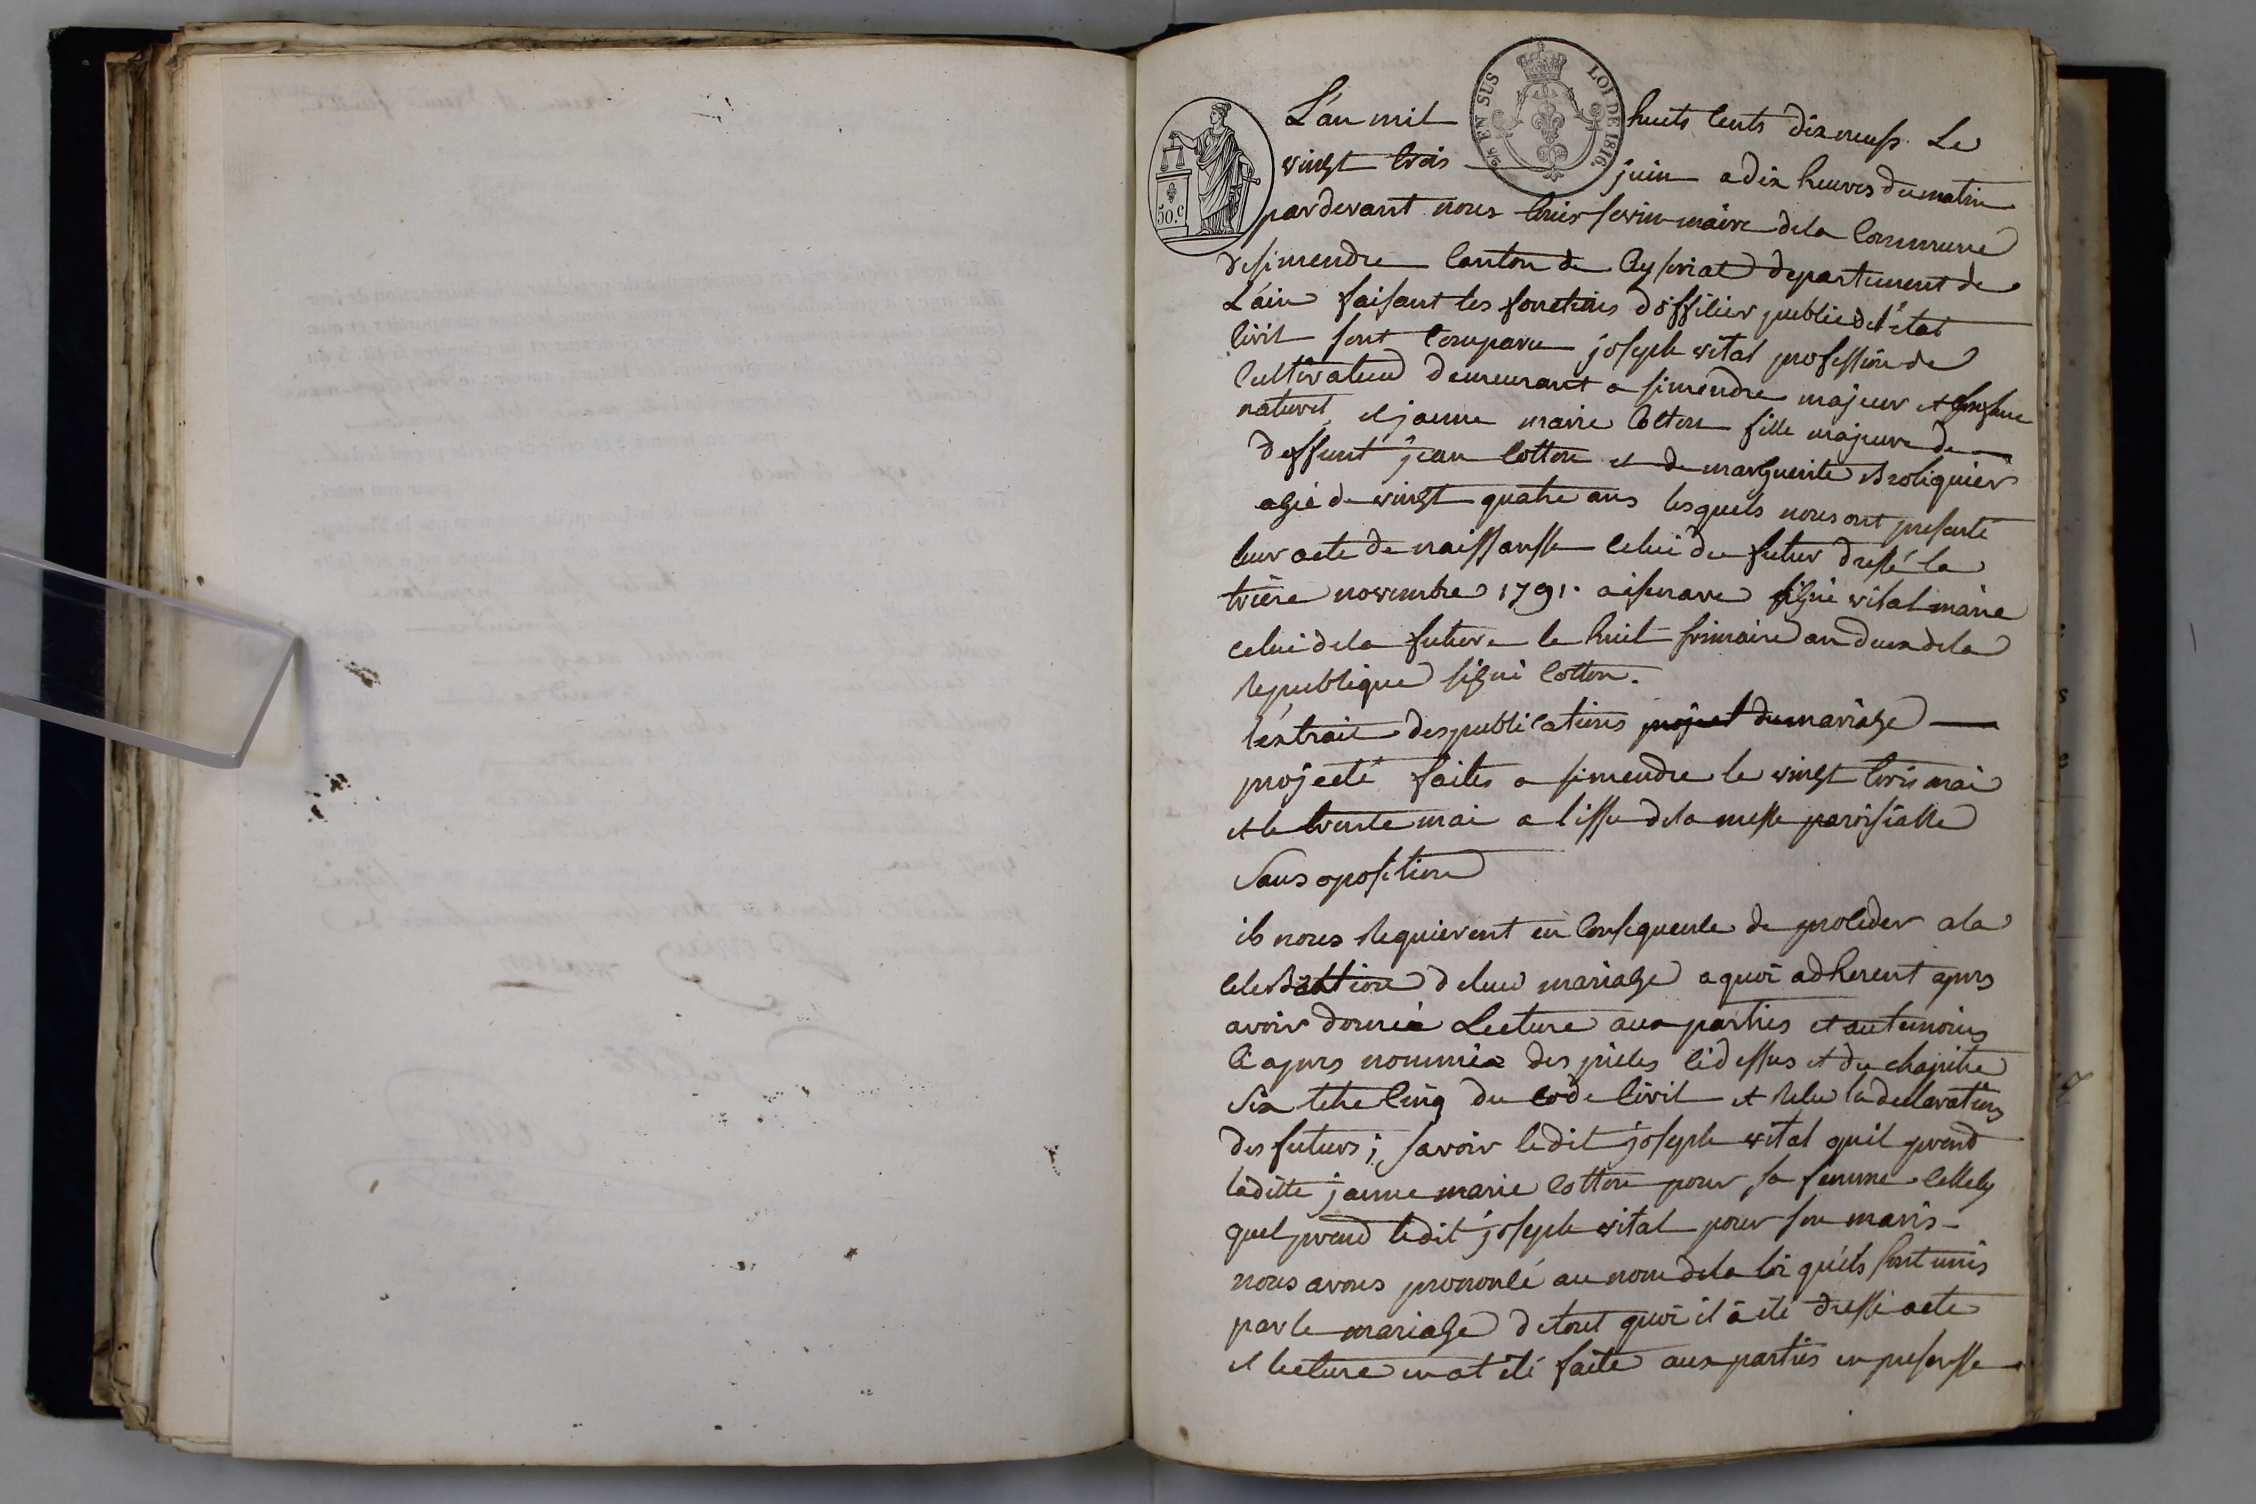 L'an mil huits cents dix neuf. Le
vingt trois juin a dix heures du matin
pardevant nous louis servin maire de la Commune
de simendre Canton de Ceyseriat departement de
L'ain faisant les fonctions d'officier public de l'état
Civil sont Comparu joseph vital profession de
Cultivateur demeurant a simendre majeur et
naturel, et janne marie Cotton fille majeure de
deffunt jean Cotton et de marguerite Broliquier
agée de vingt quatre ans lesquels nous ont presenté
leur acte de naissansse celui du futur dressé la
novembre 1791. signé vital maire
celui de la future le huit frimaire an deux de la
republique signé Cotton.
l'extrait des publications projet du mariage
projecté faites a simendre le vingt trois mai
et le trente mai a l'issu de la messe paroisialle
Sans oposition
ils nous requierent en Consequence de proceder a la
celebration de leur mariage a quoi adherent apres
avoir donnée Lecture aux parties et aux temoins
Ci apres nommée des pieces cidessus et du chapitre
Six titre Cinq du code Civil et relu la declarations
des futurs; savoir ledit joseph vital quil prend
laditte janne marie Cotton pour sa femme. celle cy
quel prend ledit joseph vital pour son maris
nous avons prononcé au nom de la loi qu'ils sont unis
par le mariage de tout quoi il à été dressé acte
et lecture en at été faite aux parties en presensse
EN SUS
LOI DE 1816.
50.c